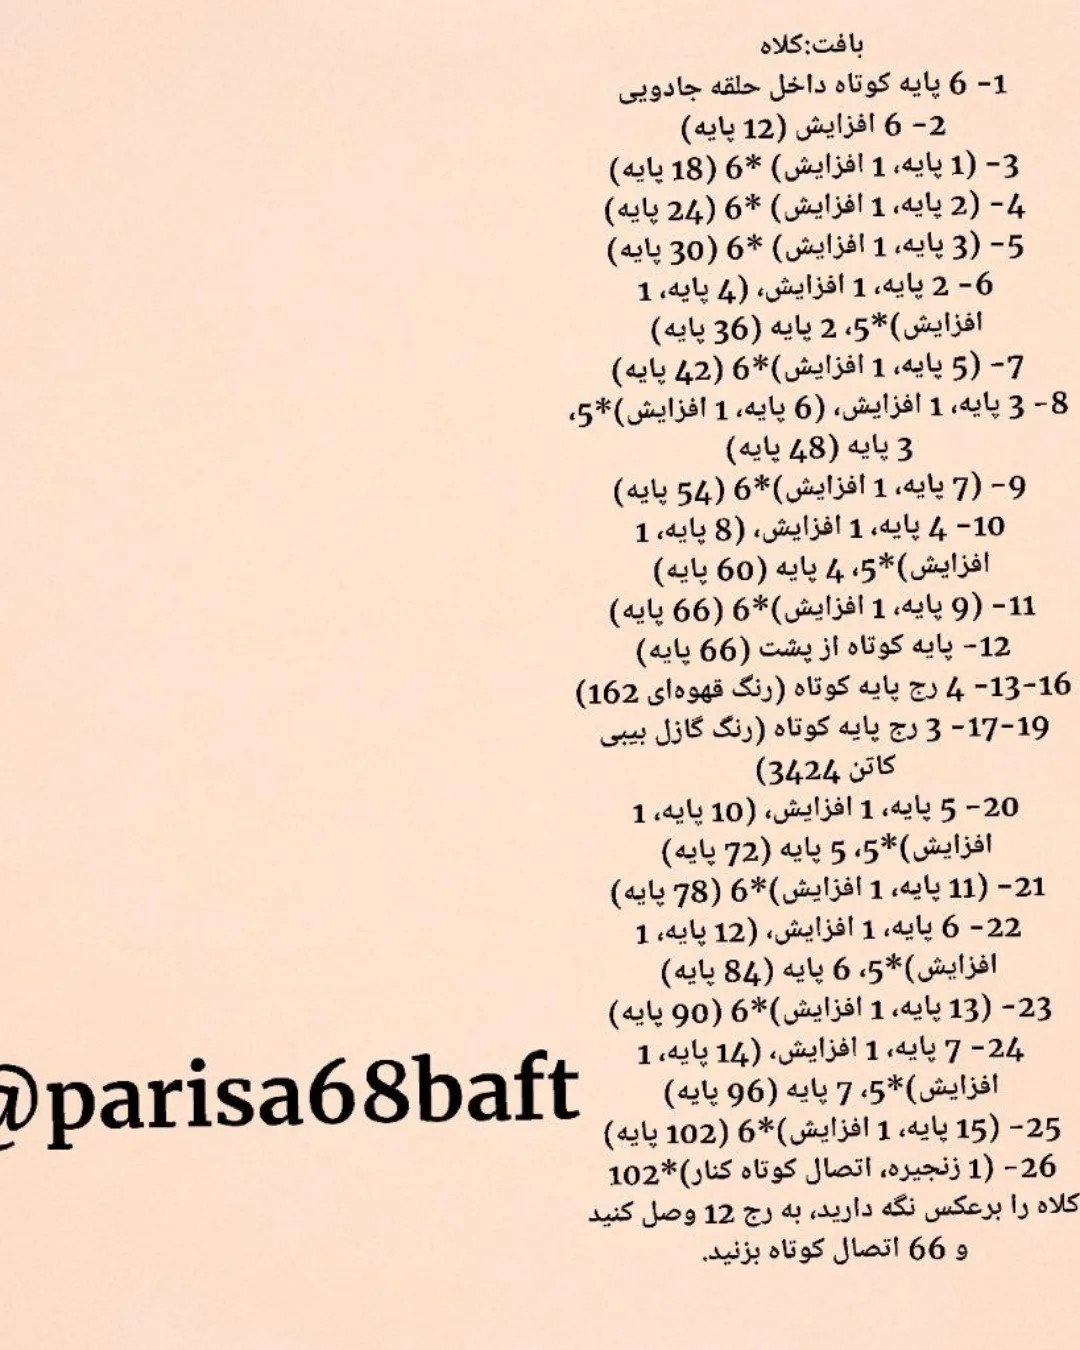 بافت:کلاه
1- 6 پایه کوتاه داخل حلقه جادویی
2- 6 افزایش (12 پایه)
3- (1 پایه، 1 افزایش) *6 (18 پایه)
4- (2 پایه، 1 افزایش) *6 (24 پایه)
5- (3 پایه، 1 افزایش) *6 (30 پایه)
6- 2 پایه، 1 افزایش، (4 پایه، 1
افزایش)*5، 2 پایه (36 پایه)
7- (5 پایه، 1 افزایش)*6 (42 پایه)
8- 3 پایه، 1 افزایش، (6 پایه، 1 افزایش)*5،
3 پایه (48 پایه)
9- (7 پایه، 1 افزایش)*6 (54 پایه)
10- 4 پایه، 1 افزایش، (8 پایه، 1
افزایش)*5، 4 پایه (60 پایه)
11- (9 پایه، 1 افزایش)*6 (66 پایه)
12- پایه کوتاه از پشت (66 پایه)
13-16- 4 رج پایه کوتاه (رنگ قهوه‌ای 162)
17-19- 3 رج پایه کوتاه (رنگ گازل بیبی
کاتن 3424)
20- 5 پایه، 1 افزایش، (10 پایه، 1
افزایش)*5، 5 پایه (72 پایه)
21- (11 پایه، 1 افزایش)*6 (78 پایه)
22- 6 پایه، 1 افزایش، (12 پایه، 1
افزایش)*5، 6 پایه (84 پایه)
23- (13 پایه، 1 افزایش)*6 (90 پایه)
24- 7 پایه، 1 افزایش، (14 پایه، 1
افزایش)*5، 7 پایه (96 پایه)
25- (15 پایه، 1 افزایش)*6 (102 پایه)
26- (1 زنجیره، اتصال کوتاه کنار)*102
کلاه را برعکس نگه دارید، به رج 12 وصل کنید
و 66 اتصال کوتاه بزنید.
@parisa68baft